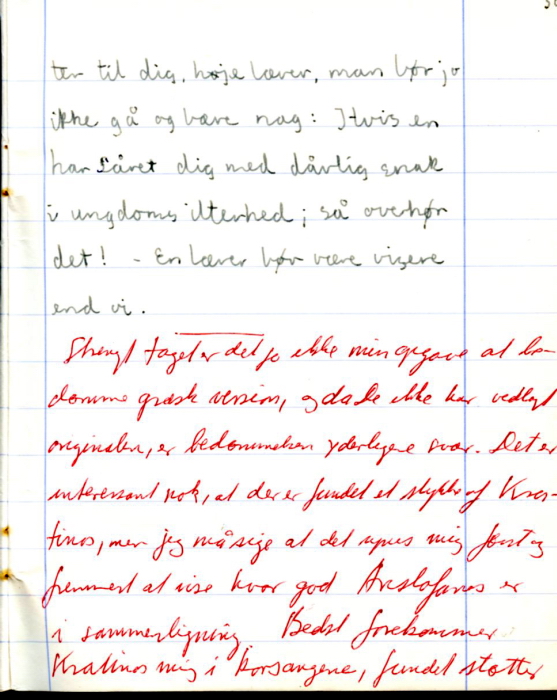 ter til dig, høje lærer, man bør jo
ikke gå og bære nag: Hvis en
har såret dig med dårlig snak
i ungdoms ilterhed; så overhør
det! - En lærer bør være visere
end vi.
Strengt taget er det jo ikke min opgave at be-
dømme græsk version, og da De ikke har vedlagt
originalen, er bedømmelsen yderligere svær. Det er
interessant nok, at der er fundet et stykke af Kra-
tinos, men jeg må sige at det synes mig først og
fremmest at vise hvor god Aristofanes er
i sammenligning. Bedst forekommer
Kratinos mig i korsangene, fundet støtter